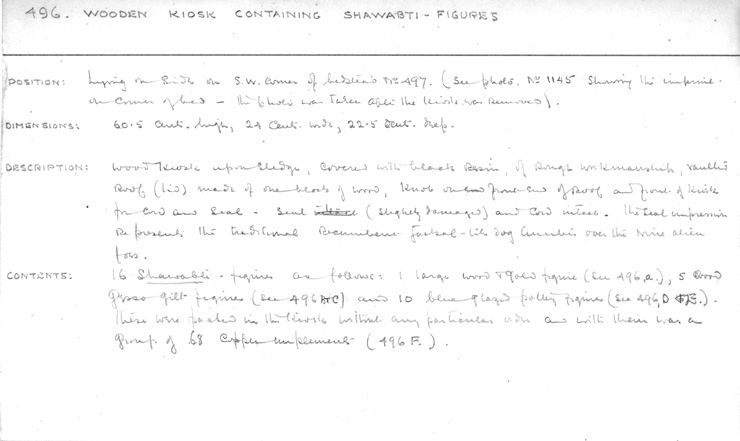 496. WOODEN KIOSK CONTAINING SHAWABTI-FIGURES
POSITION: Lying on side on S.W. corner of bedstead No 497. (See photo. No 1145 showing the
on corner of bed - the photo was taken after the Kiosk was removed).
DIMENSIONS: 60·5 cent. high, 24 cent. wide, 22·5 cent. deep.
DESCRIPTION: Wood Kiosk upon sledge, covered with black resin, of rough workmanship, vaulted
roof (lid) made of one block of wood, knob on end front end of roof and front of Kiosk
for cord and seal - seal (slightly damaged) and cord intact. The seal impression
represents the traditional recumbent jackal-like dog Anubis over the nine alien
foes.
CONTENTS: 16 Shawabti-figures as follows: 1 large wood & gold figure (see 496,a.), 5 wood
gesso gilt figures (see 496 B C) and 10 blue glazed pottery figures (see 496, D & E.).
These were packed in the Kiosk without any particular order and with them was a
group of 68 copper implements (496 F.).